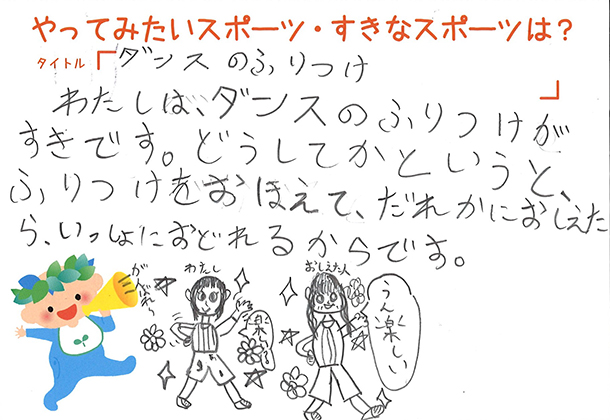 やってみたいスポーツ・すきなスポーツは?
タイトル「ダンスのふりつけ」
わたしは、ダンスのふりつけが
すきです。どうしてかというと、
ふりつけをおぼえて、だれかにおしえた
ら、いっしょにおどれるからです。
がんばれ
わたし
おしえた人
うん楽しい